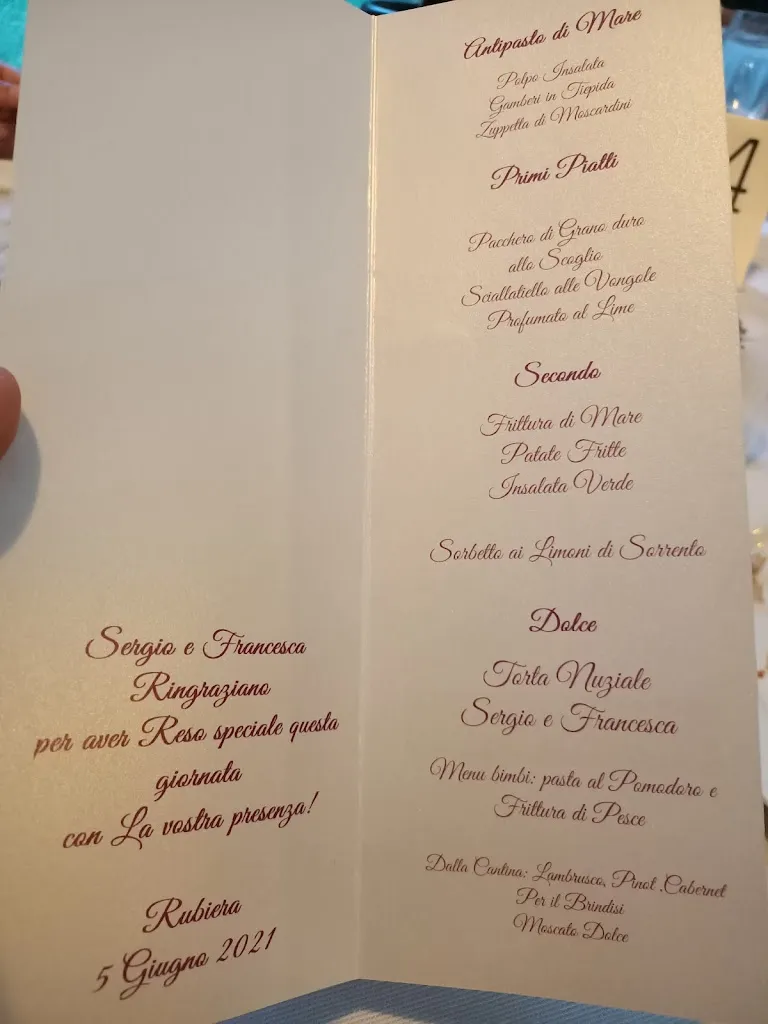 Sergio e Francesca
Ringraziano
per aver Reso speciale questa
giornata
con La vostra presenza!
Rubiera
5 Giugno 2021
Antipasto di Mare
Polpo Insalata
Gamberi in Tiepida
Zuppetta di Moscardini
Primi Piatti
Pacchero di Grano duro
allo Scoglio
Sciallatiello alle Vongole
Profumato al Lime
Secondo
Frittura di Mare
Patate Fritte
Insalata Verde
Sorbetto ai Limoni di Sorrento
Dolce
Torta Nuziale
Sergio e Francesca
Menu bimbi: pasta al Pomodoro e
Frittura di Pesce
Dalla Cantina: Lambrusco, Pinot .Cabernet
Per il Brindisi
Moscato Dolce